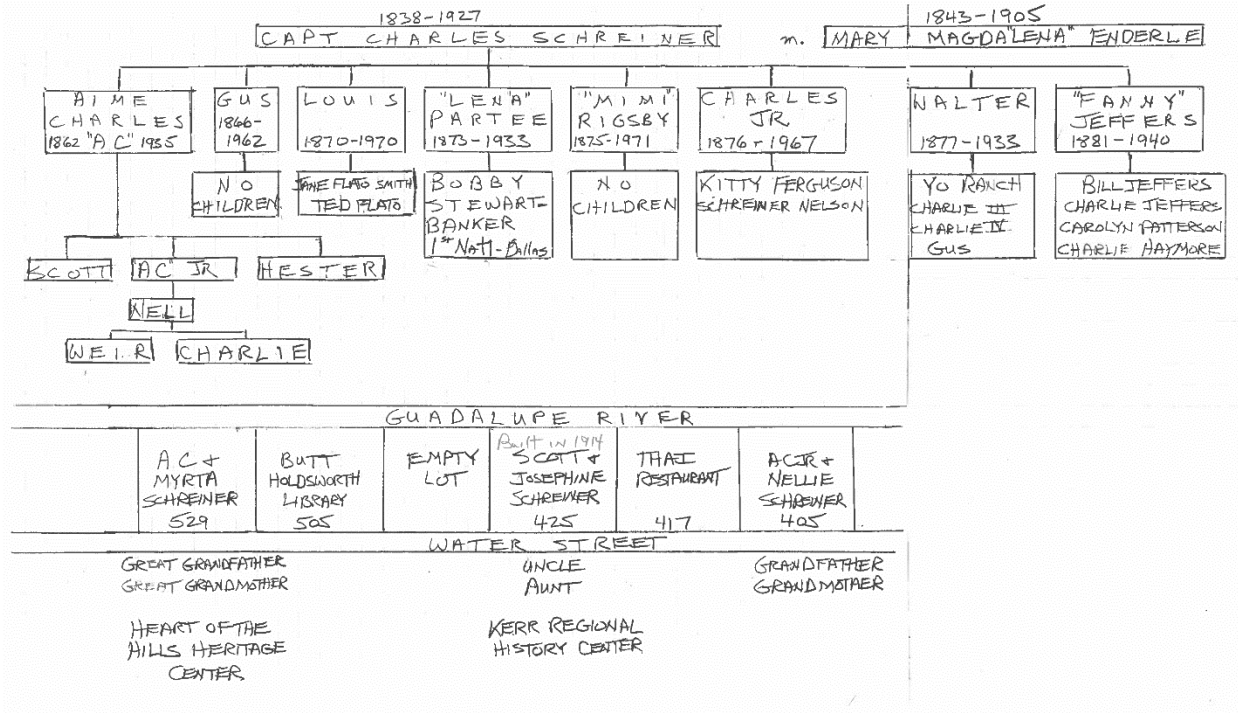 1838-1927
CAPT CHARLES SCHREINER
m.
1843-1905
MARY MAGDA"LENA" ENDERLE
AIME
CHARLES
1862 "AC" 1935
GUS
1866-
1962
LOUIS
1870-1970
"LENA"
PARTEE
1873-1933
"MIMI"
RIGSBY
1875-1971
CHARLES
JR
1876-1967
WALTER
1877-1933
"FANNY"
JEFFERS
1881-1940
NO
CHILDREN
JANE FLATO SMITH
TED FLATO
BOBBY
STEWART-
BANKER
1st Nat'l-Dallas
NO
CHILDREN
KITTY FERGUSON
SCHREINER NELSON
YO RANCH
CHARLIE III
CHARLIE IV
GUS
BILL JEFFERS
CHARLIE JEFFERS
CAROLYN PATTERSON
CHARLIE HAYMORE
SCOTT
"AC" JR
HESTER
NELL
WEIR
CHARLIE
GUADALUPE RIVER
AC &
MYRTA
SCHREINER
529
BUTT
HOLDSWORTH
LIBRARY
505
EMPTY
LOT
Built in 1914
SCOTT &
JOSEPHINE
SCHREINER
425
THAI
RESTAURANT
417
AC JR &
NELLIE
SCHREINER
405
WATER STREET
GREAT GRANDFATHER
GREAT GRANDMOTHER
UNCLE
AUNT
GRANDFATHER
GRANDMOTHER
HEART OF THE
HILLS HERITAGE
CENTER
KERR REGIONAL
HISTORY CENTER